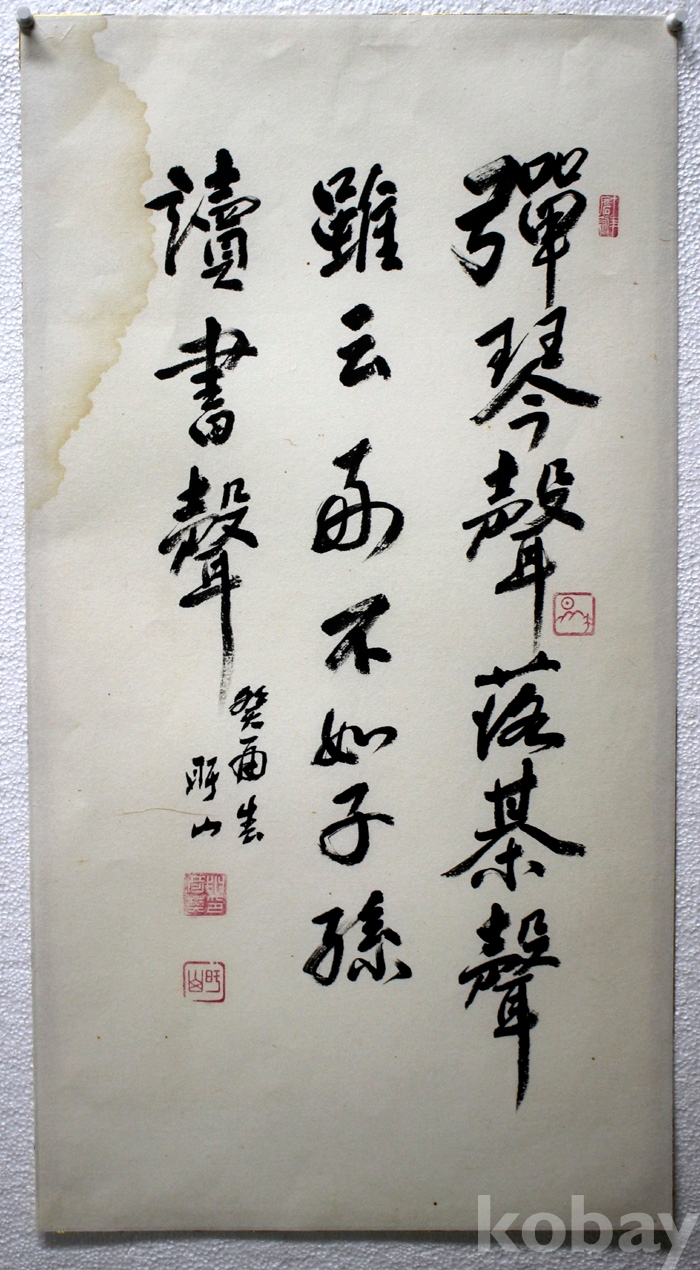 彈琴聲落棊聲
雖云不如子孫
讀書聲
癸酉春
旿山
kobay